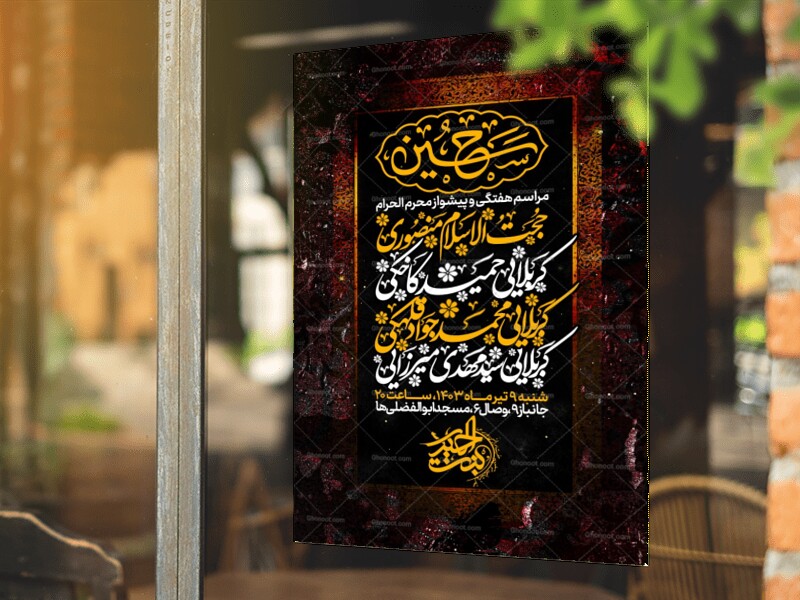 حسین
مراسم هفتگی و پیشواز محرم الحرام
حجت الاسلام منصوری
کربلایی حمید
کربلایی محمد جواد
کربلایی سید مهدی میرزایی
شنبه ۹ تیر ماه ۱۴۰۳، ساعت ۲۰
جانباز ۹، وصال ۶، مسجد ابوالفضلی‌ها
بنت الحیدر
Ghonoot.com